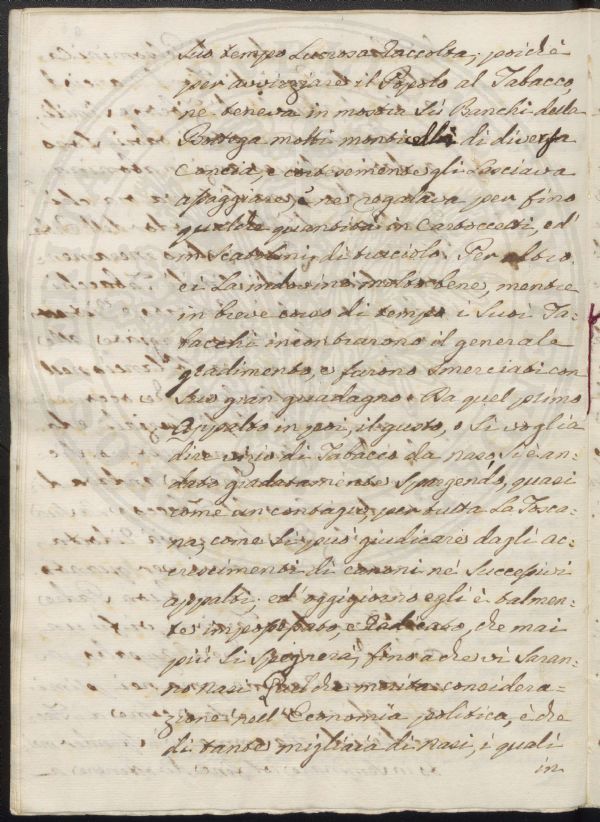 suo tempo Lucrosa Raccolta; poichè
per avvezzare il Popolo al Tabacco,
ne teneva in mostra sù Banchi della
Bottega molti monticelli di diversa
Concia, e cortesemente gli lasciava
assaggiare, e ne regalava per fino
qualche quantità in Cartoccetti, ed'
in Scatolini, di bucciolo. Per altro
ei La indovinò molto bene, mentre
in breve corso di tempo i suoi Ta=
bacchi incontrarono il generale
gradimento, e furono smerciati con
suo gran guadagno. Da quel primo
Appalto in poi, il gusto, o si voglia
dire vizio di Tabacco da naso si è an=
dato gradatamente spargendo, quasi
come un contagio, per tutta La Tosca=
na, come si può giudicare dagli ac=
crescimenti di canoni né successivi
appalti; ed' oggigiorno egli è talmen=
te impossessato, e Radicato, che mai
più si spegnerà, fino a che vi saran=
no nasi. Quel che merita considera=
zione nell' Economia politica, è che
di tante migliaia di nasi, i quali
in